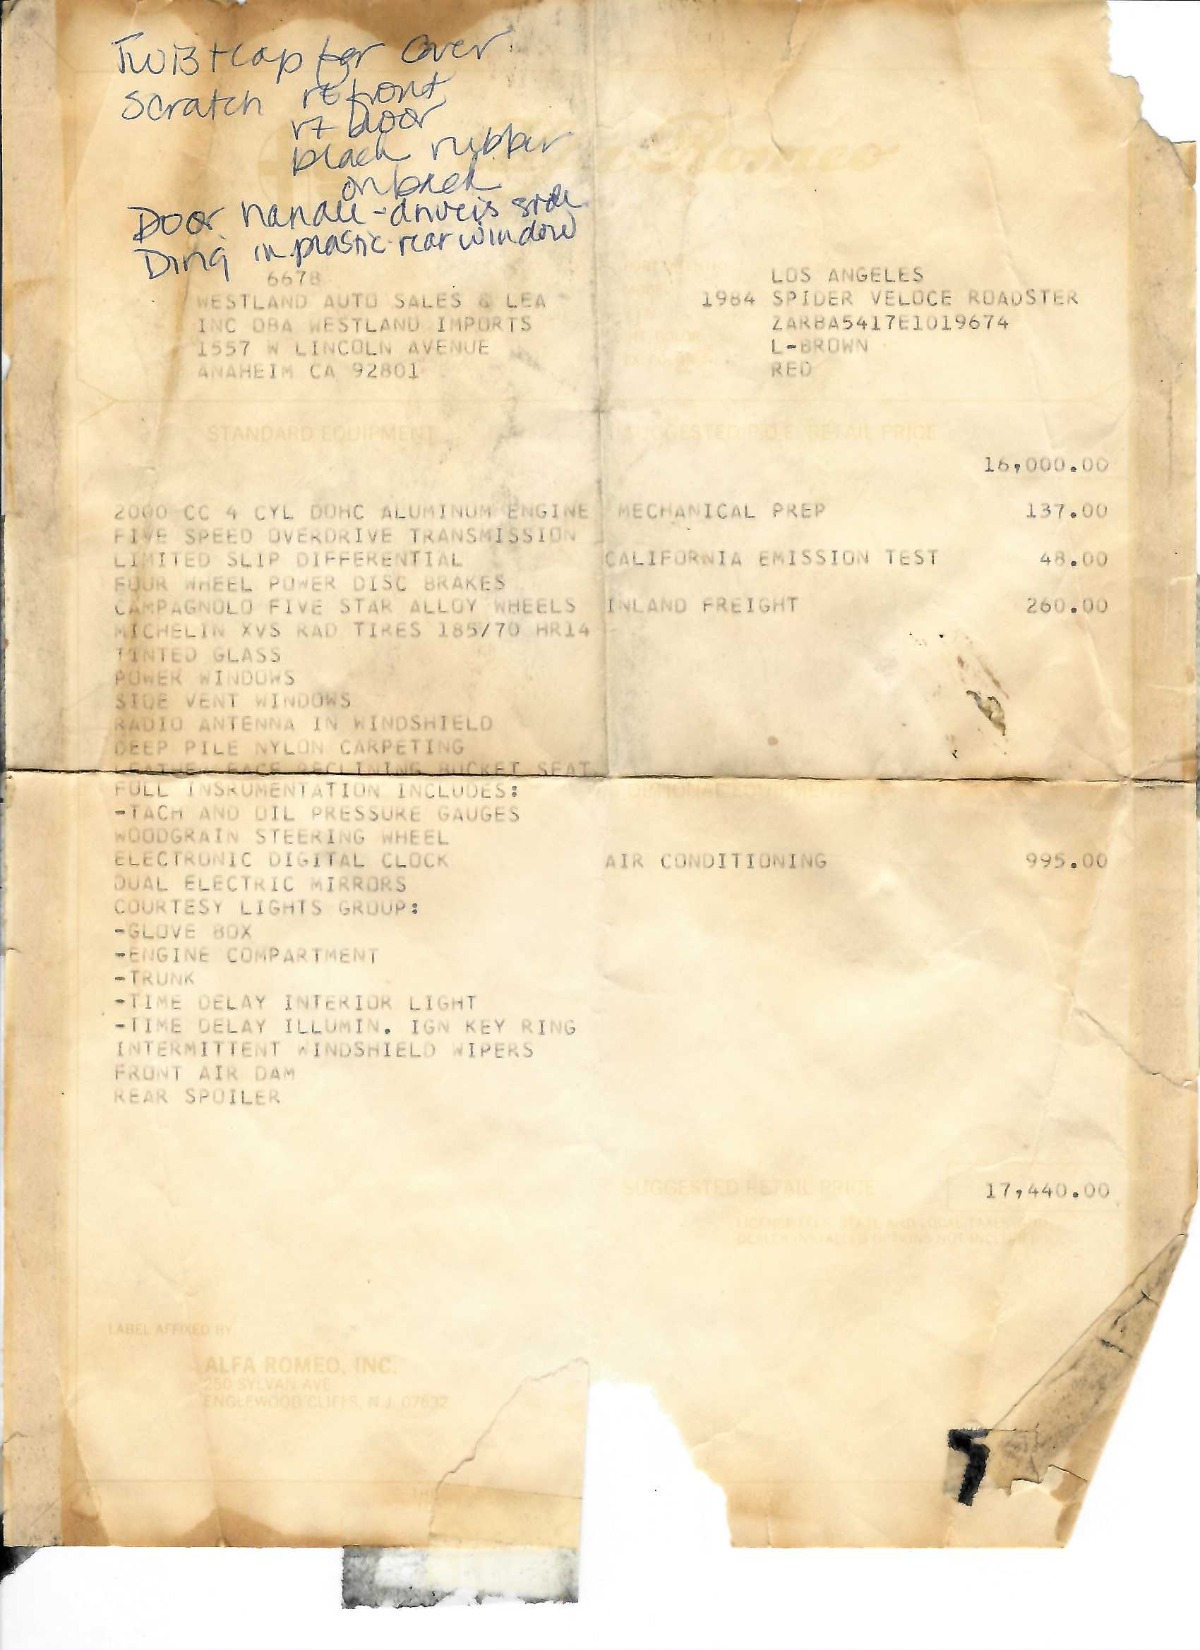 Twist cap for cover
scratch rt front
rt door
black rubber
on back
Door handle - driver's side
Ding in plastic rear window
Alfa Romeo
6678
WESTLAND AUTO SALES & LEA
INC DBA WESTLAND IMPORTS
1557 W LINCOLN AVENUE
ANAHEIM CA 92801
LOS ANGELES
1984 SPIDER VELOCE ROADSTER
ZARBA5417E1019674
L-BROWN
RED
STANDARD EQUIPMENT
SUGGESTED P.O.E. RETAIL PRICE
16,000.00
2000 CC 4 CYL DOHC ALUMINUM ENGINE
FIVE SPEED OVERDRIVE TRANSMISSION
LIMITED SLIP DIFFERENTIAL
FOUR WHEEL POWER DISC BRAKES
CAMPAGNOLO FIVE STAR ALLOY WHEELS
MICHELIN XVS RAD TIRES 185/70 HR14
TINTED GLASS
POWER WINDOWS
SIDE VENT WINDOWS
RADIO ANTENNA IN WINDSHIELD
DEEP PILE NYLON CARPETING
LEATHER FACE RECLINING BUCKET SEAT
FULL INSRUMENTATION INCLUDES:
-TACH AND OIL PRESSURE GAUGES
WOODGRAIN STEERING WHEEL
ELECTRONIC DIGITAL CLOCK
DUAL ELECTRIC MIRRORS
COURTESY LIGHTS GROUP:
-GLOVE BOX
-ENGINE COMPARTMENT
-TRUNK
-TIME DELAY INTERIOR LIGHT
-TIME DELAY ILLUMIN. IGN KEY RING
INTERMITTENT WINDSHIELD WIPERS
FRONT AIR DAM
REAR SPOILER
MECHANICAL PREP 137.00
CALIFORNIA EMISSION TEST 48.00
INLAND FREIGHT 260.00
OPTIONAL
AIR CONDITIONING 995.00
SUGGESTED RETAIL PRICE 17,440.00
LABEL AFFIXED BY
ALFA ROMEO, INC.
250 SYLVAN AVE
ENGLEWOOD CLIFFS, N.J. 07632